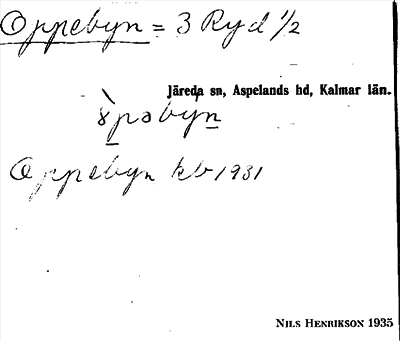 Oppebyn = 3 Ryd 1/2
Järeda sn, Aspelands hd, Kalmar län.
Oppebyn kb 1931
NILS HENRIKSON 1935